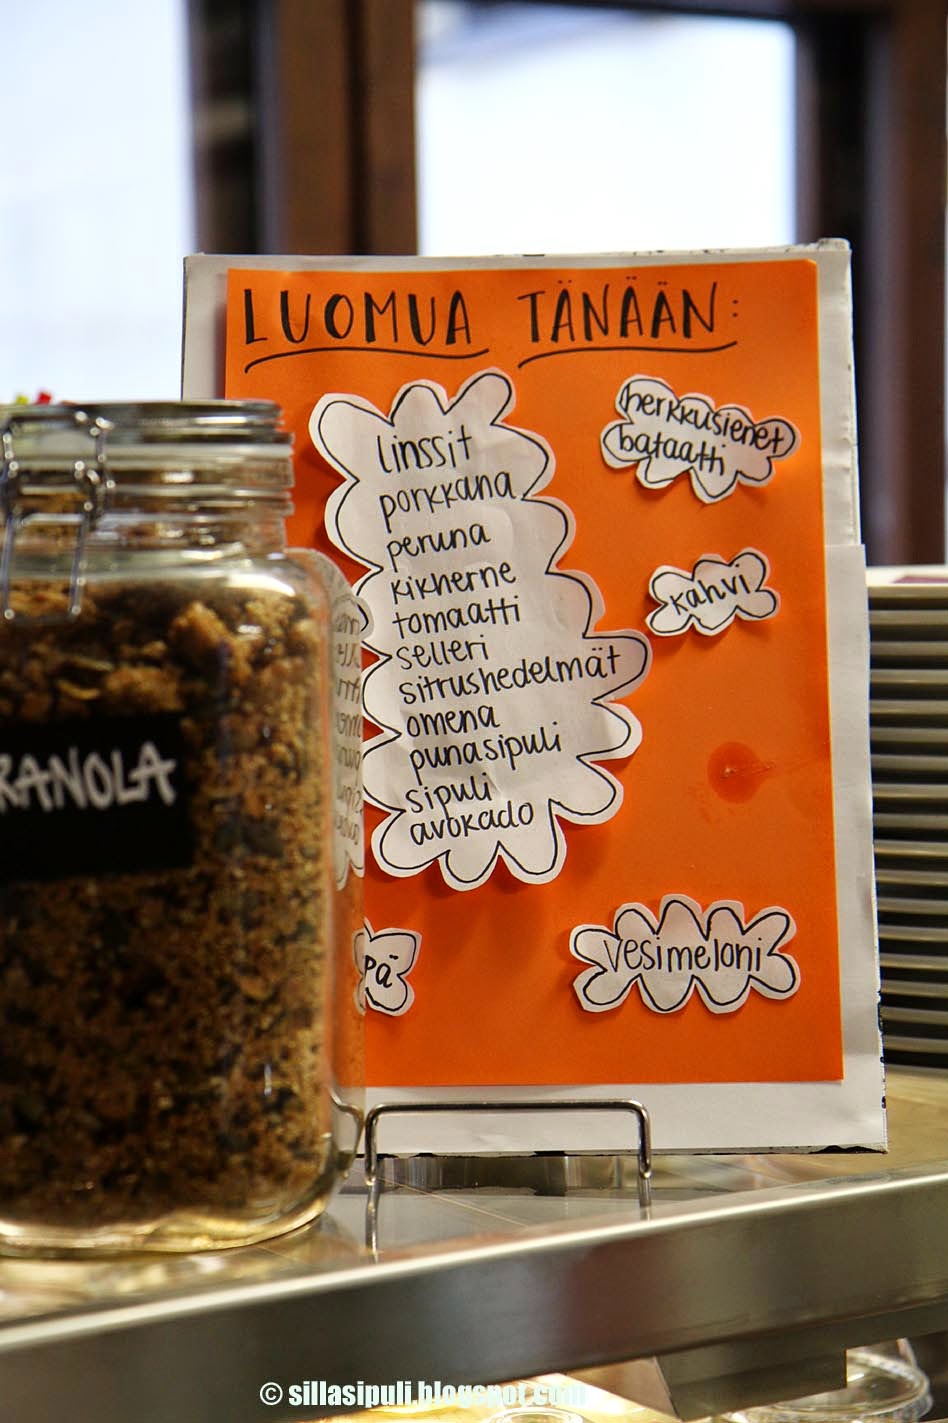 LUOMUA TÄNÄÄN:
linssit
porkkana
peruna
kikherne
tomaatti
selleri
sitrushedelmät
omena
punasipuli
sipuli
avokado
herkkusienet
bataatti
kahvi
vesimeloni
pä
RANOLA
© sillasipuli.blogspot.com